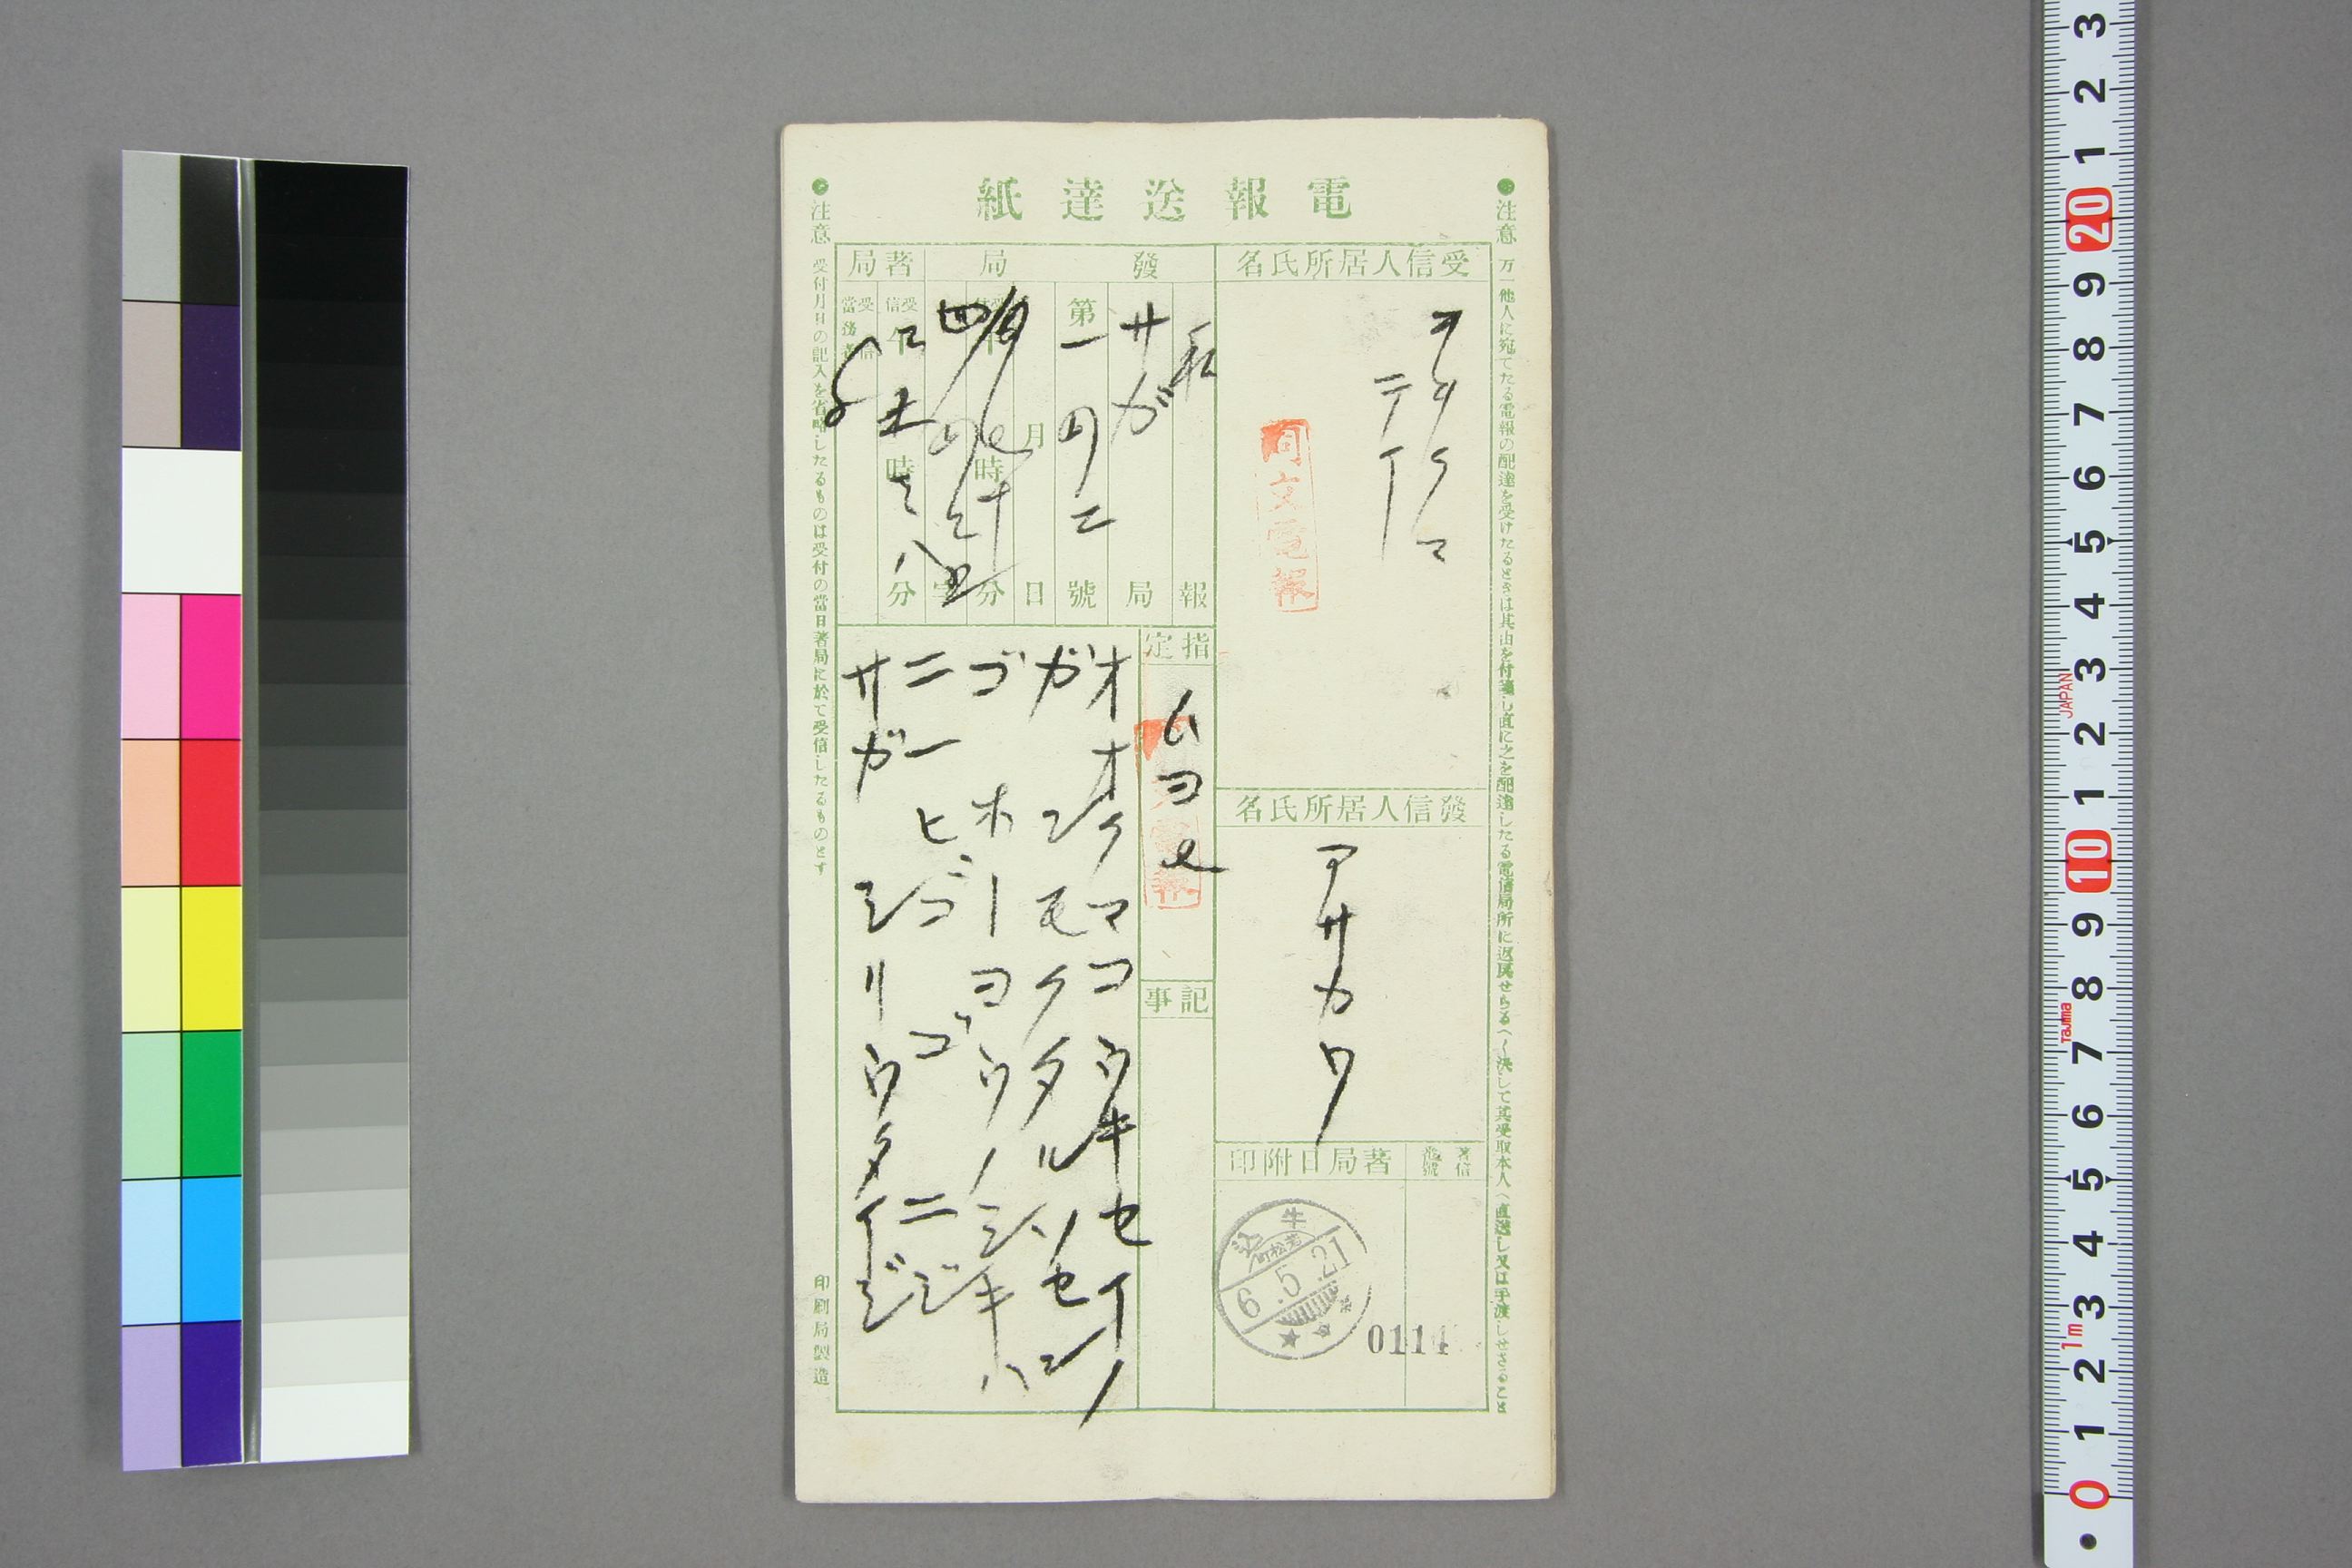 電報送達紙
●注意 万一他人に宛てたる電報の配達を受けたるときは其由を付箋し直に之を配達したる電信局所に返戻せらるへく決して其受取本人へ直送し又は手渡しせさること
受信人居所氏名
オオクマ
テイ
同文電報
發信人居所氏名
アサカワ
著信番號
著局日附印
牛込
若松町
6.5.21
0114
發局
私報
サガ局
第一ノ二號
月日
時分
著局
受信
午
時分
ハ
指定
ムヨヒ
記事
オオクマコウキセイノ
ガンモクタルソセン
ゴホーヨウノシキハ
ニ一ヒゴゴニジ
サガシリウタイジ
●注意 受付月日の記入を省略したるものは受付の當日著局に於て受信したるものとす
印刷局製造
3
2
1
20
9
8
7
6
5
4
3
JAPAN
2
1
10
9
8
Tajima
7
6
5
4
3
1m
2
1
0